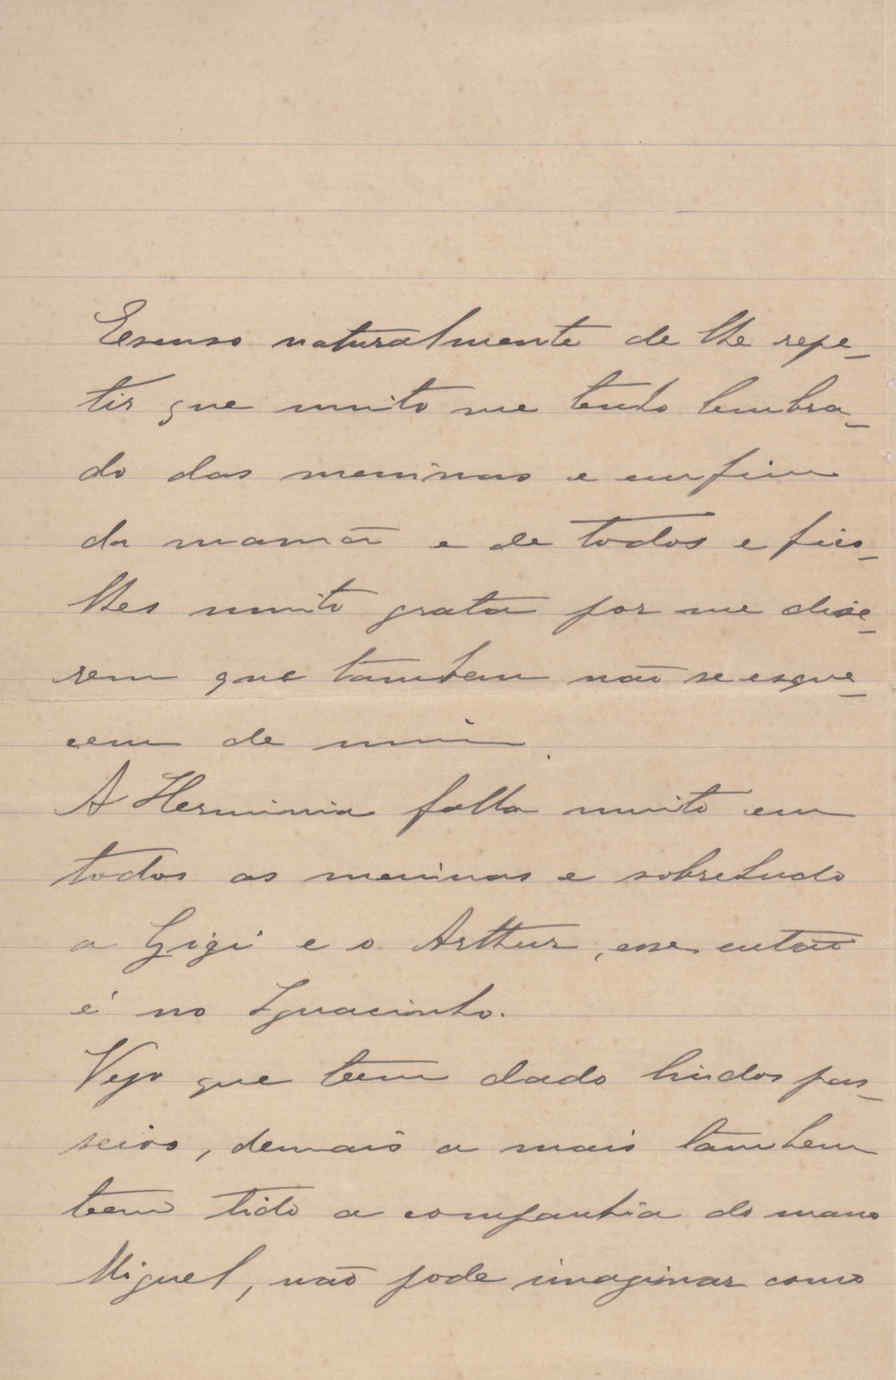 Escuso naturalmente de lhe repe-
tir que muito me tenho lembra-
do das meninas e emfim
da mamã e de todos e fico-
lhes muito grata por me dize-
rem que tambem não se esque-
cem de mim.
A Herminia falla muito em
todos as meninas e sobretudo
a Gigi e o Arthur, esse então
é no Ignacinho.
Vejo que tem dado lindos pas-
seios, demais a mais tambem
tem tido a companhia do mano
Miguel, não pode imaginar como